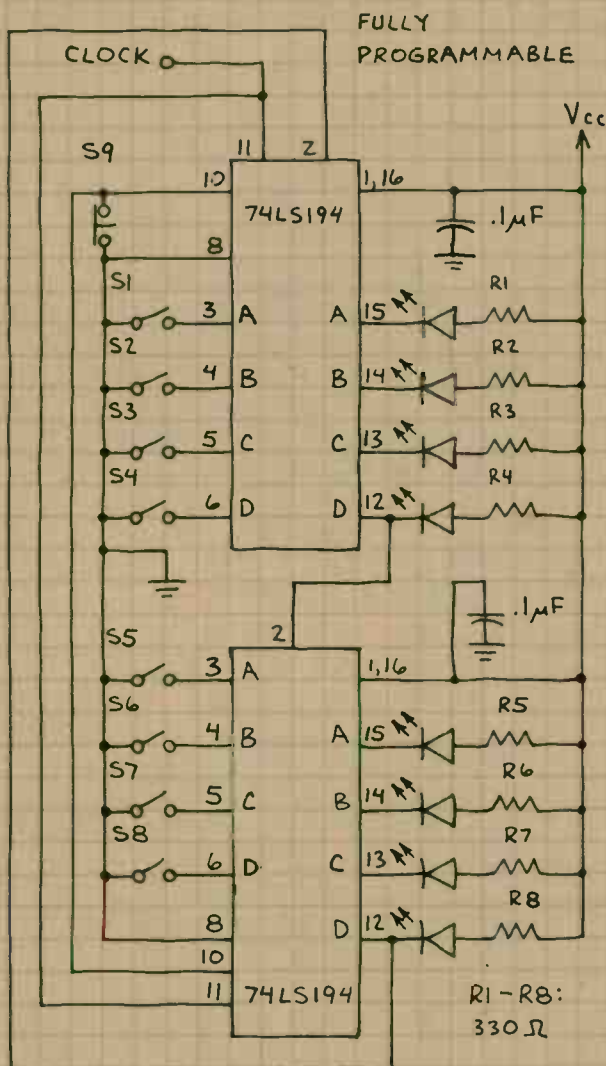 FULLY
PROGRAMMABLE
CLOCK
Vcc
S9
11 2
10 1,16
74LS194
.1µF
8
S1
R1
3 A A 15
S2
R2
4 B B 14
S3
R3
5 C C 13
S4
R4
6 D D 12
.1µF
2
S5
3 A 1,16
R5
S6
4 B A 15
R6
S7
5 C B 14
R7
S8
6 D C 13
R8
8 D 12
10
11 74LS194
R1-R8:
330 Ω